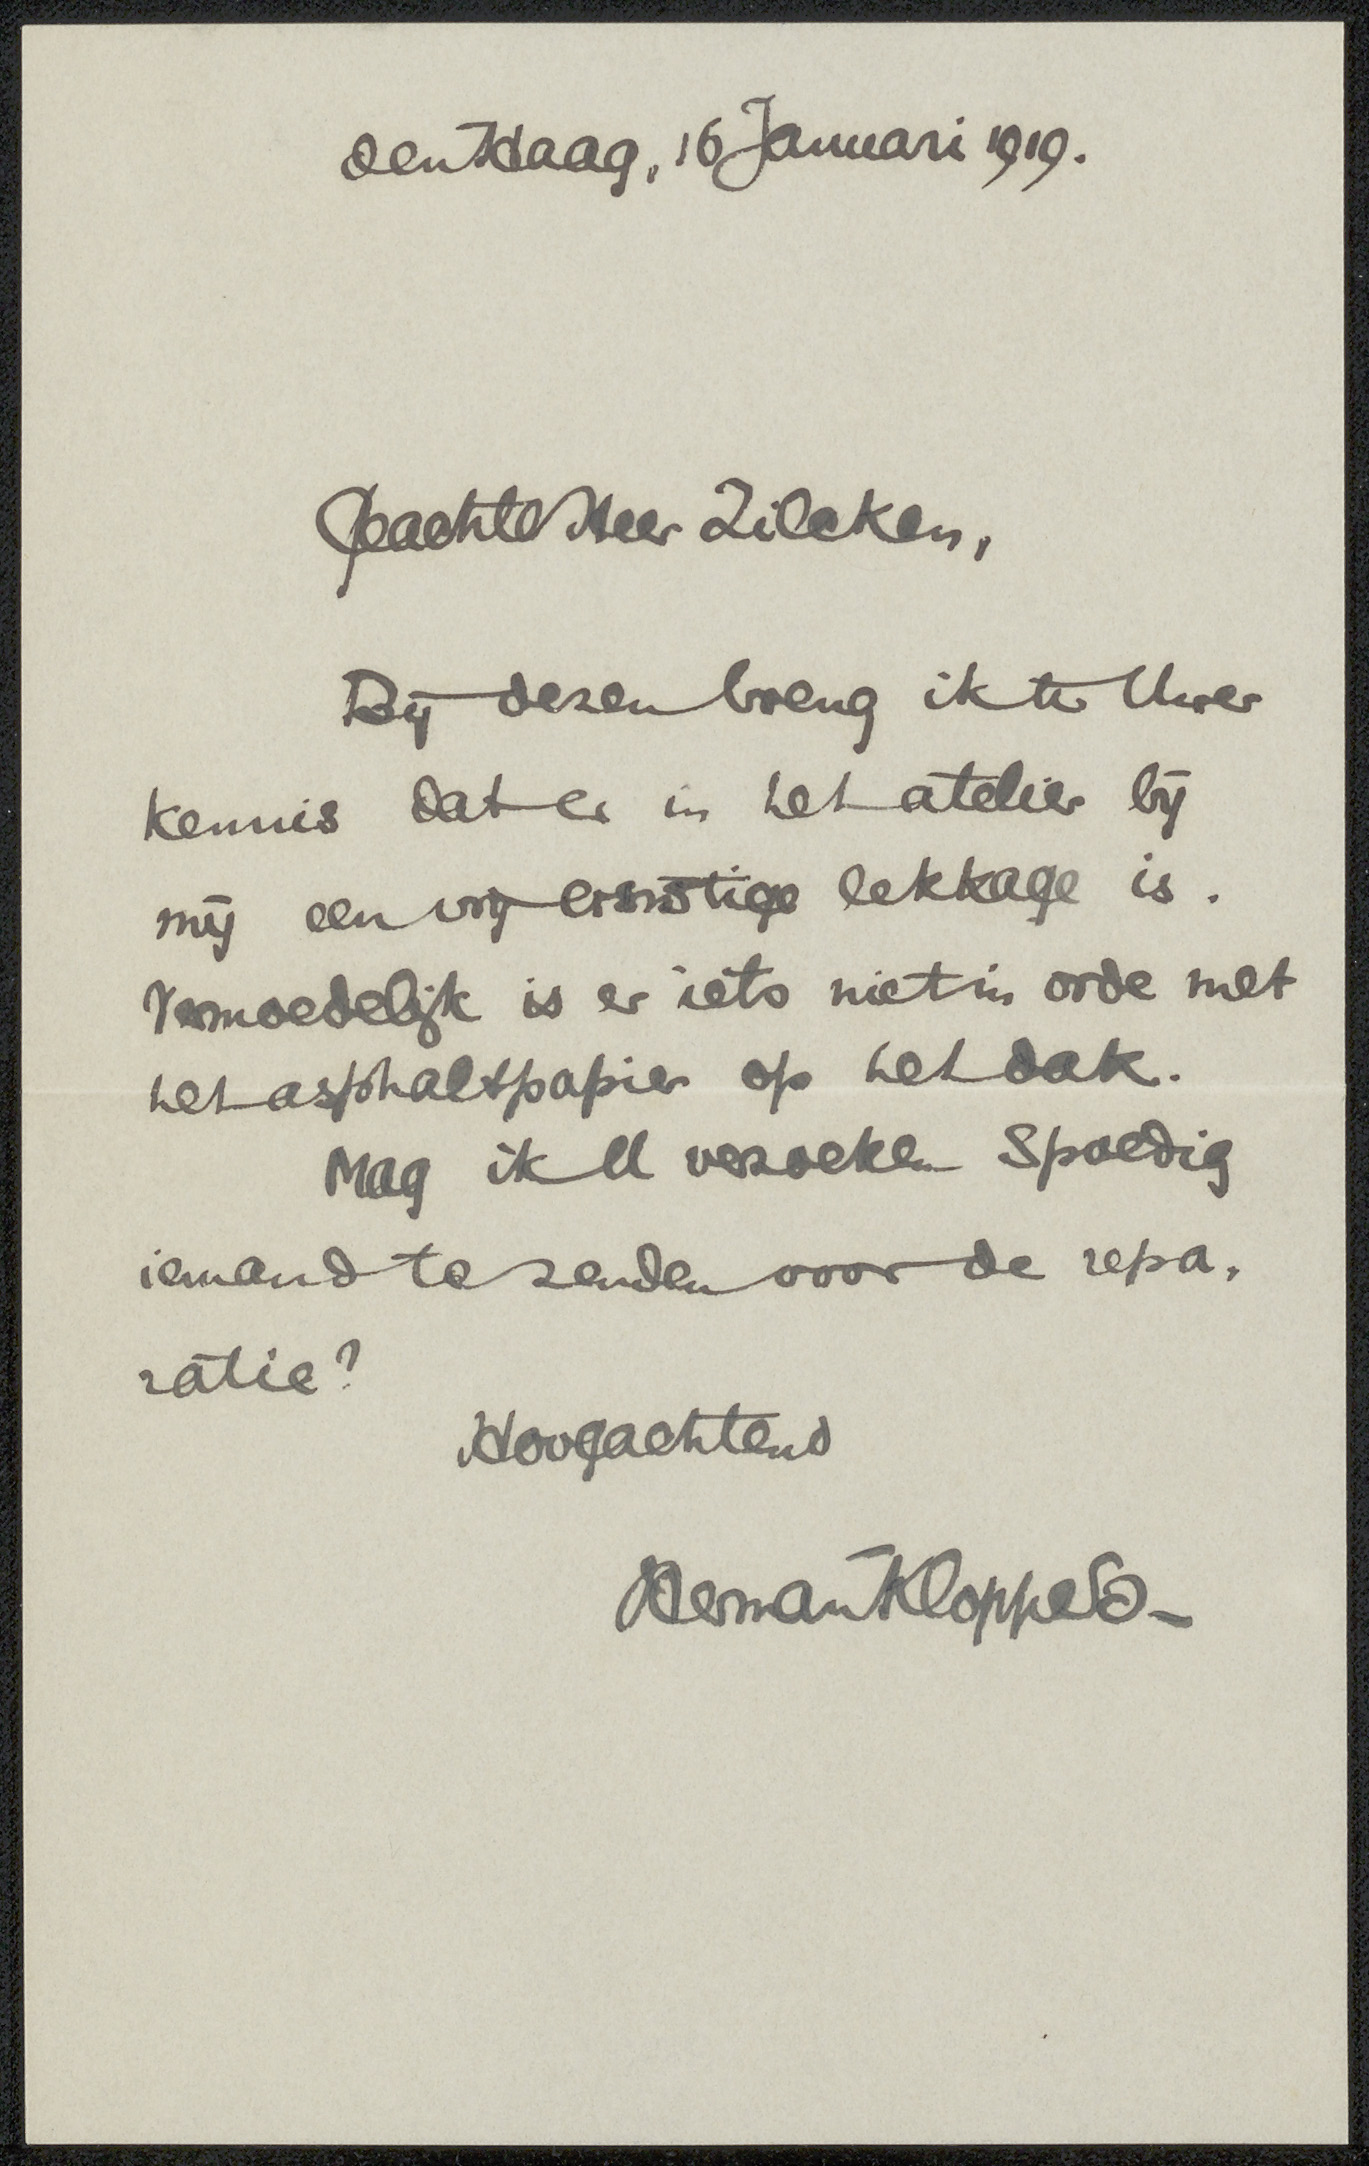 den Haag, 16 Januari 1919.
Geachte Heer Zilcken,
Bij dezen breng ik te Uwer
kennis dat er in het atelier bij
mij een vrij ernstige lekkage is.
Vermoedelijk is er iets niet in orde met
het asphaltpapier op het dak.
Mag ik U verzoeken spoedig
iemand te zenden voor de repa-
ratie?
Hoogachtend
Herman Kloppers